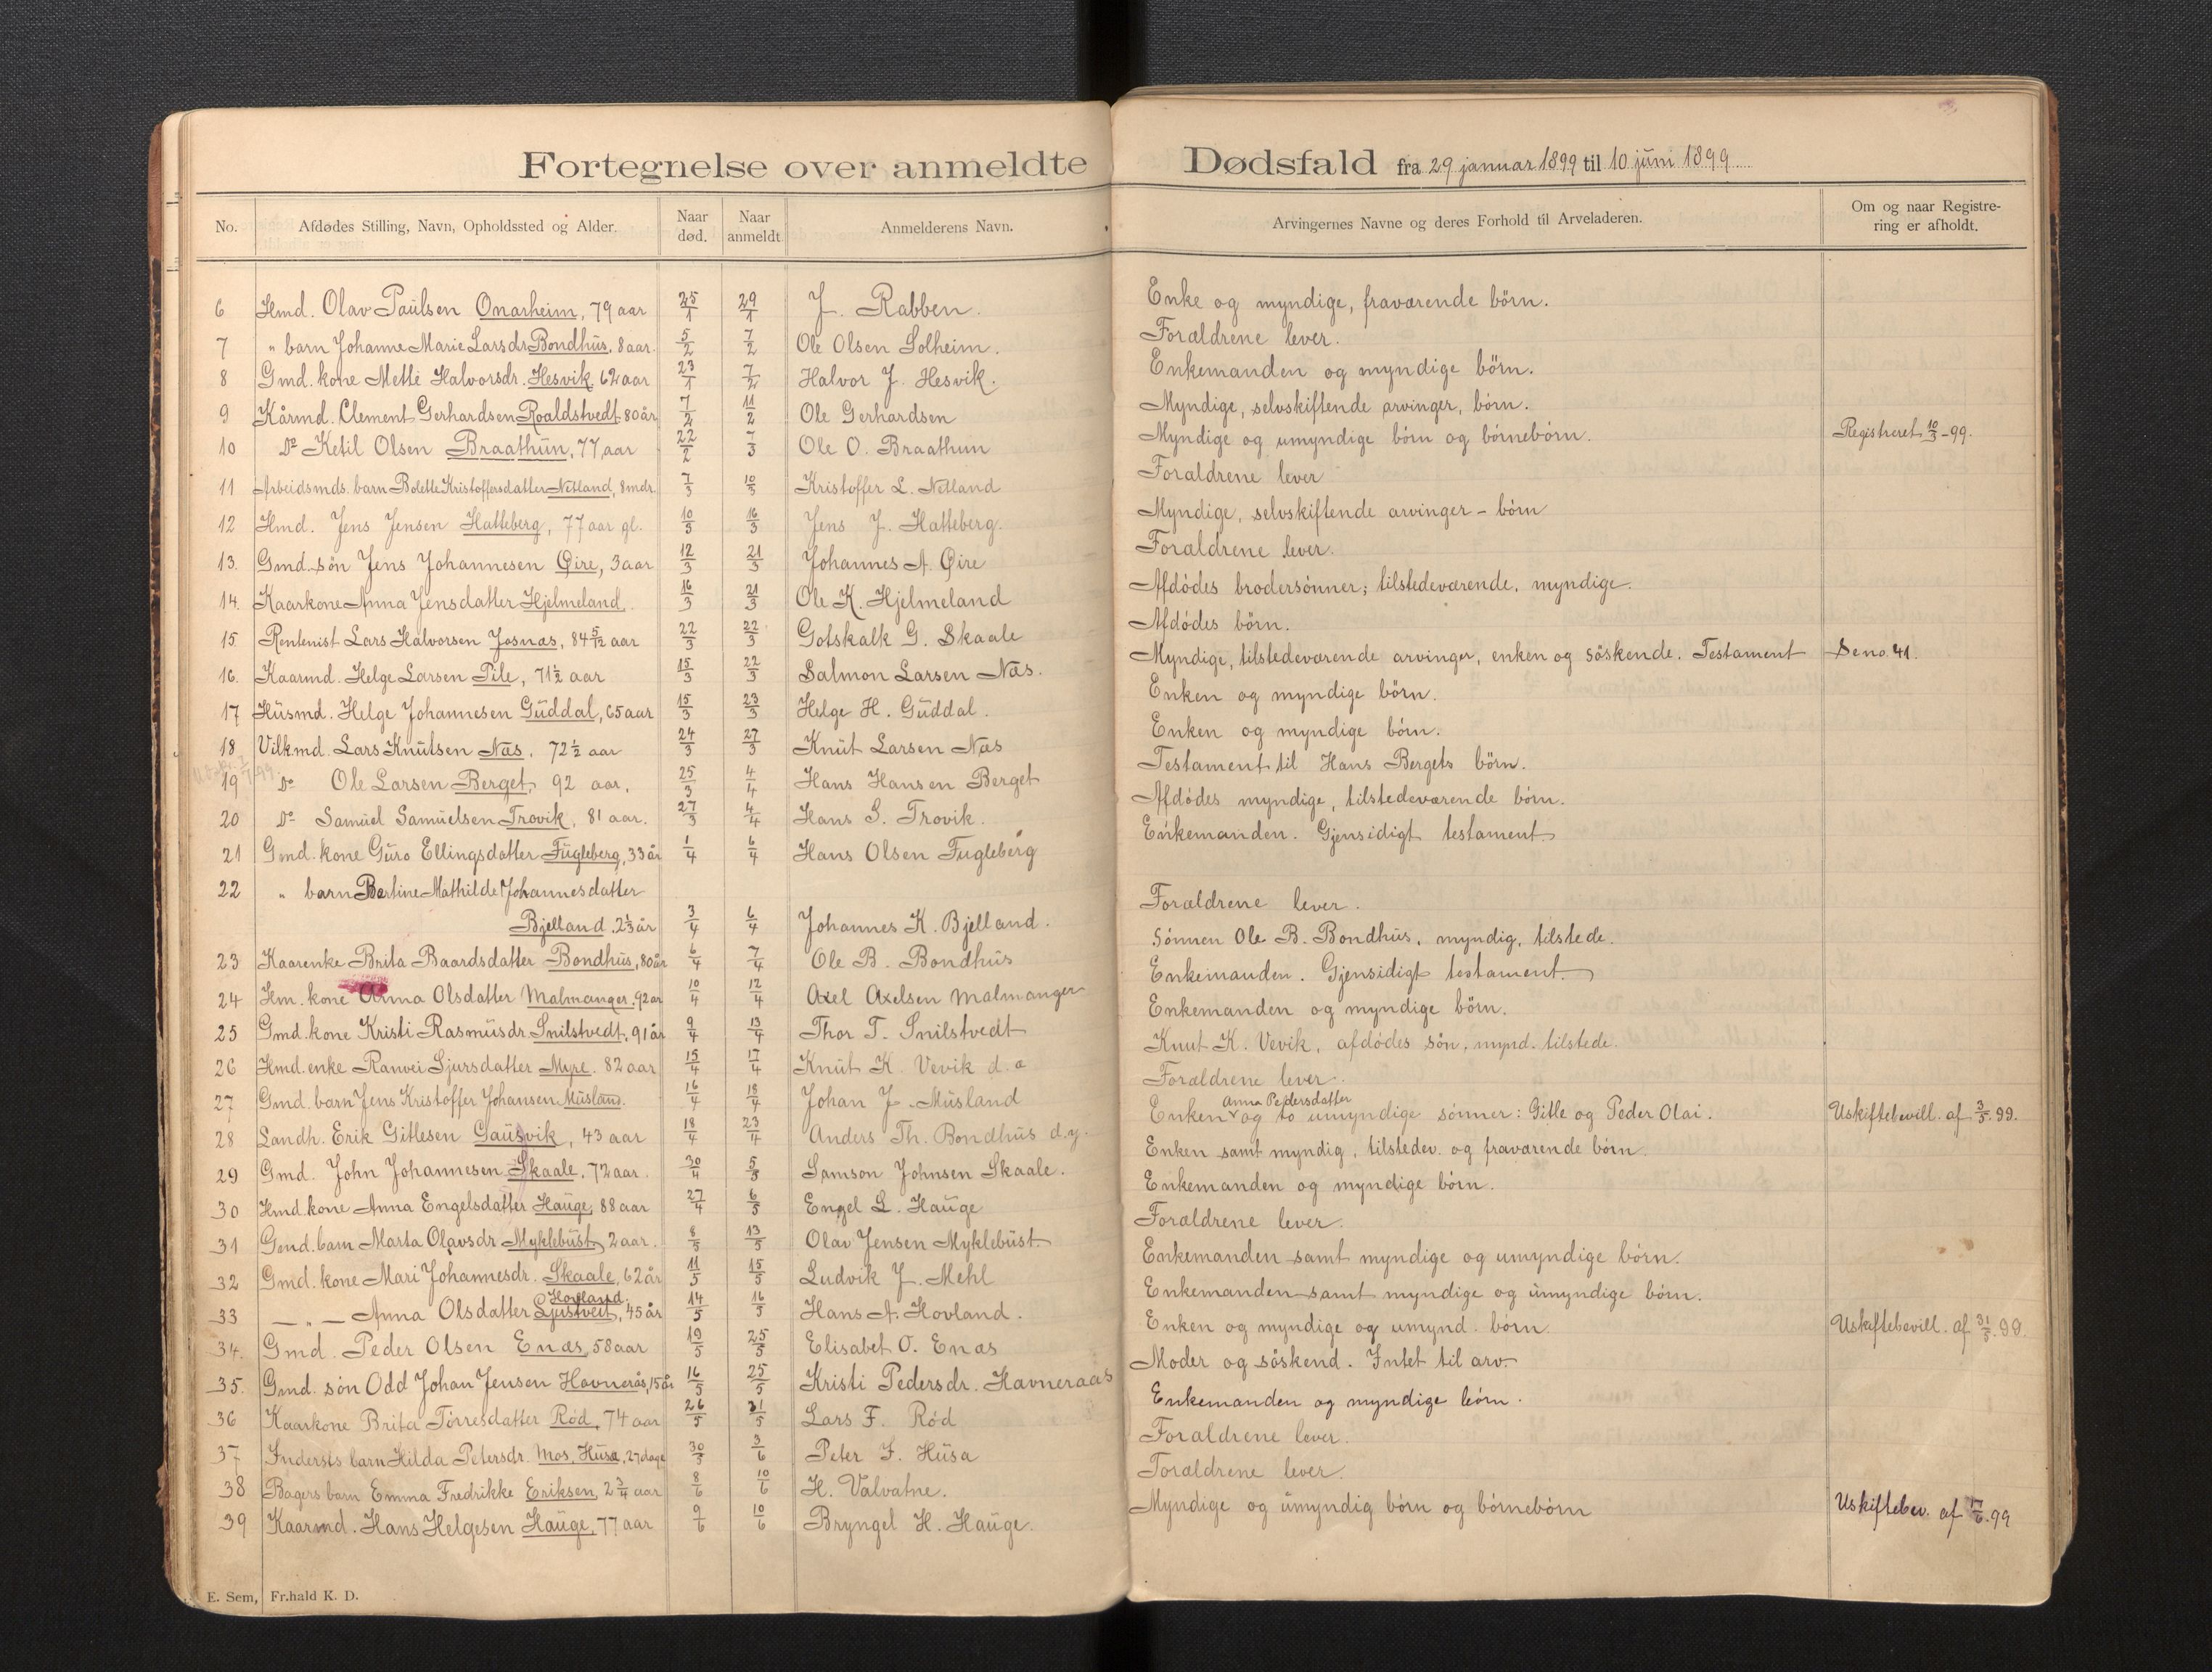 Fortegnelse over anmeldte Dødsfald fra 29 januar 1899 til 10 juni 1899
No. Afdødes Stilling, Navn, Opholdssted og Alder. Naar død. Naar anmeldt. Anmelderens Navn. Arvingernes Navne og deres Forhold til Arveladeren. Om og naar Registrering er afholdt.
6 Hmd. Olav Paulsen Onarheim, 79 aar 25/1 29/1 J. Rabben. Enke og myndige, fraværende börn.
7 " barn Johanne Marie Larsdr Bondhus. 8 aar. 5/2 7/2 Ole Olsen Solheim. Forældrene lever.
8 Gmd. kone Metté Halvorsdr. Hesvik, 62 aar 23/1 7/2 Halvor J. Hesvik. Enkemanden og myndige börn.
9 Kårmd. Clement Gerhardsen Roaldstvedt 80 år 7/2 11/2 Ole Gerhardsen Myndige, selvskiftende arvinger, börn.
10 Do Ketil Olsen Braathun, 77 aar 22/2 7/3 Ole O. Braathun Myndige og umyndige börn og börnebörn. Registreret 10/3-99.
11 Arbeidsmds. barn Bolette Kristoffersdatter Netland, 8 mdr. 7/3 10/3 Kristoffer L. Netland Forældrene lever
12 Hmd. Jens Jensen Hatteberg, 77 aar gl. 10/3 16/3 Jens J. Hatteberg. Myndige, selvskiftende arvinger - börn
13. Gmd. sön Jens Johannesen Øire, 3 aar 12/3 21/3 Johannes A. Øire Forældrene lever.
14. Kaarkone Anna Jensdatter Hjelmeland. 16/3 21/3 Ole K. Hjelmeland Afdödes brodersönner; tilstedeværende, myndige.
15 Rentenist Lars Halvorsen Josnæs, 84 5/12 aar 22/3 22/3 Gotskalk G. Skaale Afdödes börn.
16. Kaarmd. Helge Larsen Pile, 71 1/2 aar 15/3 22/3 Salmon Larsen Næs. Myndige, tilstedeværende arvinger, enken og söskende. Testament Se no. 41.
17 Husmd. Helge Johannesen Guddal, 65 aar 15/3 23/3 Helge H. Guddal. Enken og myndige börn.
18 Vilkmd. Lars Knutsen Næs. 72 1/2 aar 24/3 27/3 Knut Larsen Næs Enken og myndige börn.
19 Do Ole Larsen Berget, 92 aar, 25/3 4/4 Hans Hansen Berget Testament til Hans Bergets börn.
20 Do Samuel Samuelsen Trovik, 81 aar. 27/3 4/4 Hans S. Trovik. Afdödes myndige, tilstedeværende börn.
21 Gmd. kone Guro Ellingsdatter Fugleberg, 33 år 1/4 6/4 Hans Olsen Fugleberg Enkemanden. Gjensidigt testament
22 " barn Bertine Mathilde Johannesdatter
Bjelland. 2 1/3 år 3/4 6/4 Johannes K. Bjelland. Forældrene lever.
23 Kaarenke Brita Baardsdatter Bondhus, 80 år 6/4 7/4 Ole B. Bondhus Sönnen Ole B. Bondhus, myndig, tilstede.
24 Hm. kone Anna Olsdatter Malmanger. 92 år 10/4 12/4 Axel Axelsen Malmanger Enkemanden. Gjensidigt testament
25 Gmd. kone Kristi Rasmusdr. Snilstvedt. 91 år 9/4 13/4 Thor T. Snilstvedt Enkemanden og myndige börn.
26 Hmd. enke Ranvei Sjursdatter Myre. 82 aar 15/4 17/4 Knut K. Vevik d. æ Knut K. Vevik, afdödes sön, mynd. tilstede.
27 Gmd. barn Jens Kristoffer Johansen Musland. 16/4 18/4 Johan J. Musland Forældrene lever.
28 Landh. Erik Gitlesen Gausvik, 43 aar 18/4 23/4 Anders Th. Bondhus d.y. Enken Anna Pedersdatter og to umyndige sönner: Gitle og Peder Olai. Uskiftebevill. af 3/5.99.
29 Gmd. John Johannesen Skaale, 72 aar. 30/4 5/5 Samson Johnsen Skaale. Enken samt myndig, tilstedev. og fraværende börn.
30 Hmd. kone Anna Engelsdatter Hauge, 88 aar 27/4 6/5 Engel L. Hauge Enkemanden og myndige börn.
31 Gmd. barn Marta Olavsdr Myklebust, 2 aar. 8/5 13/5 Olav Jensen Myklebust. Forældrene lever.
32 Gmd. kone Mari Johannesdr. Skaale, 62 år 11/5 15/5 Ludvik J. Mehl Enkemanden samt myndige og umyndige börn.
33 — " — Anna Olsdatter Ljustveit Hovland, 45 år 14/5 16/5 Hans A. Hovland. Enkemanden samt myndige og umyndige börn.
34. Gmd. Peder Olsen Enæs, 58 aar 19/5 25/5 Elisabet O. Enæs Enken og myndige og umynd. börn. Uskiftebevill. af 31/5.99.
35. Gmd. sön Odd Johan Jensen Havnerås, 15 år 16/5 25/5 Kristi Pedersdr. Havneraas Moder og söskend. Intet til arv.
36 Kaarkone Brita Torresdatter Röd, 74 aar 26/5 31/5 Lars F. Röd Enkemanden og myndige börn.
37 Indersts barn Hilda Petersdr. Mos, Husa, 27 dage 30/5 3/6 Peter J. Husa Forældrene lever.
38 Bagers barn Emma Fredrikke Eriksen, 2 3/4 aar 8/6 10/6 H. Valvatne. Forældrene lever.
39 Kaarmd. Hans Helgesen Hauge, 77 aar 9/6 10/6 Bryngel H. Hauge. Myndige og umyndig börn og börnebörn Uskiftebev. af 17/6.99
E. Sem, Fr.hald K. D.